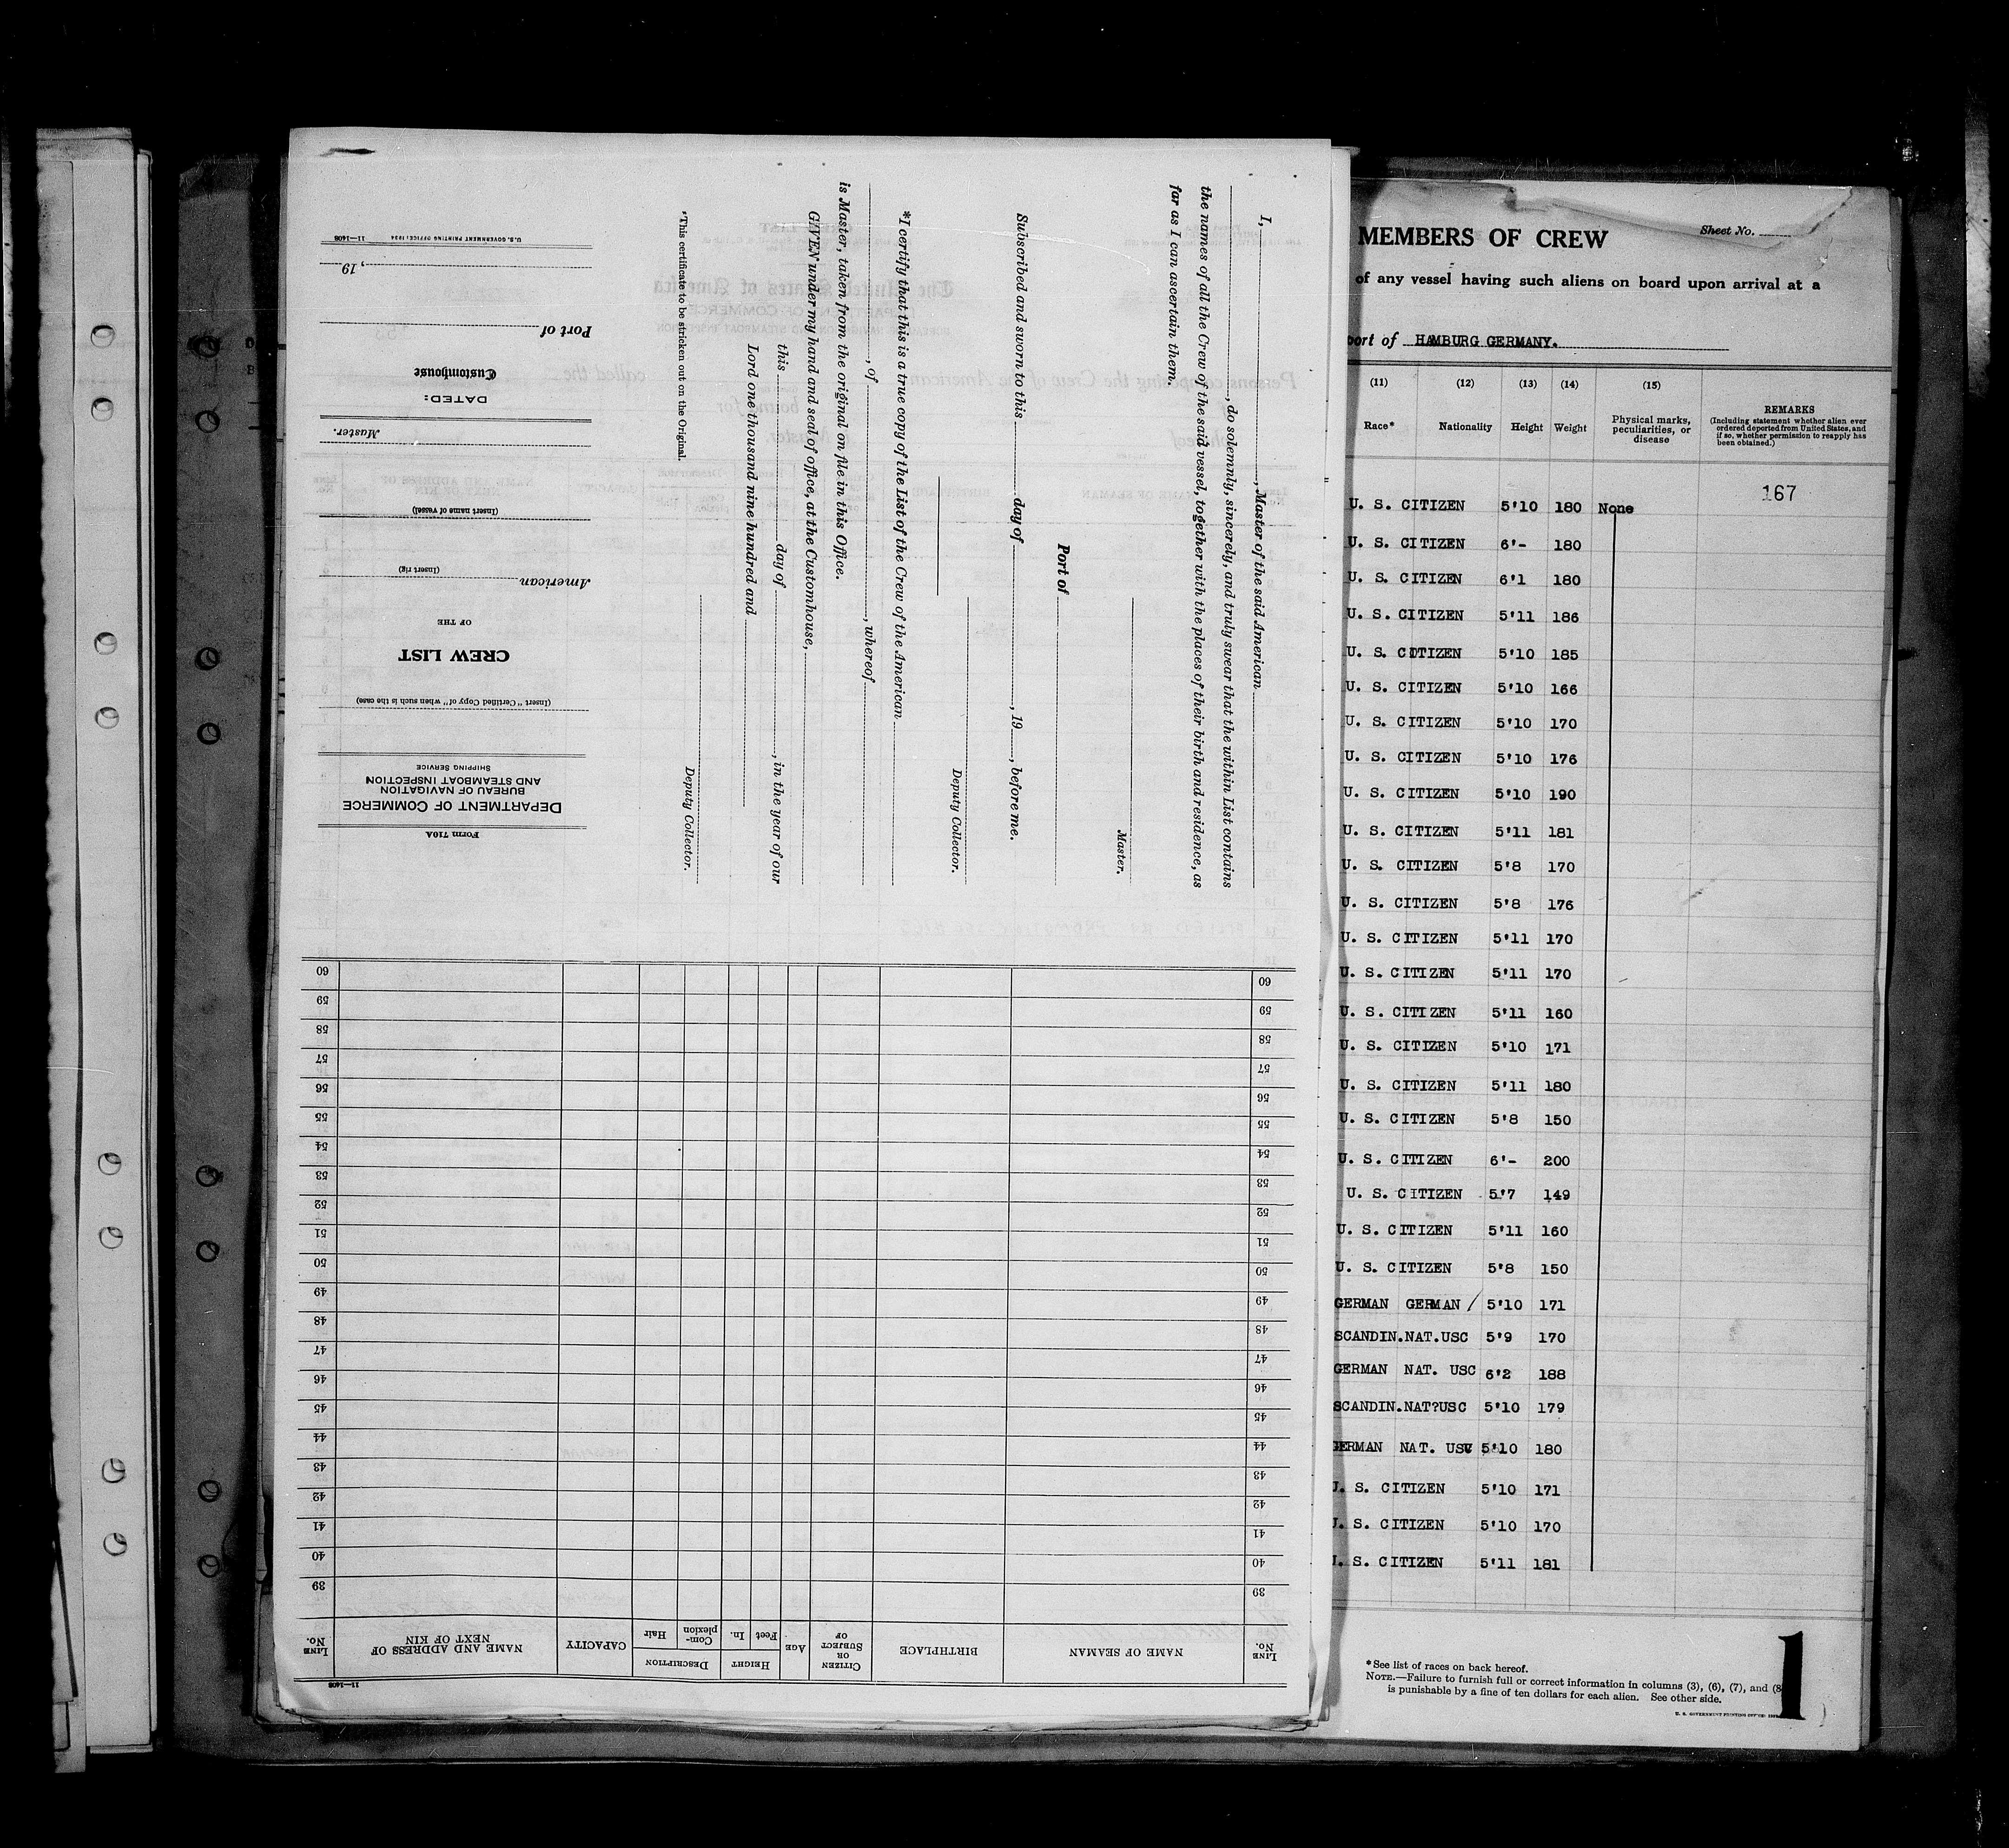 Form 710A
DEPARTMENT OF COMMERCE
BUREAU OF NAVIGATION
AND STEAMBOAT INSPECTION
SHIPPING SERVICE
(Insert "Certified Copy of" when such is the case)
CREW LIST
OF THE
American
(Insert rig)
(Insert name of vessel)
Master.
DATED:
Customhouse
Port of
, 19
U.S. GOVERNMENT PRINTING OFFICE: 1934 11—1408
I, , Master of the said American
, do solemnly, sincerely, and truly swear that the within List contains
the names of all the Crew of the said vessel, together with the places of their birth and residence, as
far as I can ascertain them.
Master.
Port of
Subscribed and sworn to this day of , 19 , before me.
Deputy Collector.
*I certify that this is a true copy of the List of the Crew of the American
, of , whereof
is Master, taken from the original on file in this Office.
GIVEN under my hand and seal of office, at the Customhouse,
this day of , in the year of our
Lord one thousand nine hundred and
Deputy Collector.
*This certificate to be stricken out on the Original.
11—1408
LINE No. NAME OF SEAMAN BIRTHPLACE CITIZEN OR SUBJECT OF AGE HEIGHT Feet In. DESCRIPTION Com-plexion Hair CAPACITY NAME AND ADDRESS OF NEXT OF KIN LINE No.
39 39
40 40
41 41
42 42
43 43
44 44
45 45
46 46
47 47
48 48
49 49
50 50
51 51
52 52
53 53
54 54
55 55
56 56
57 57
58 58
59 59
60 60
MEMBERS OF CREW
Sheet No.
of any vessel having such aliens on board upon arrival at a
port of HAMBURG GERMANY.
(11) (12) (13) (14) (15)
Race* Nationality Height Weight Physical marks, peculiarities, or disease REMARKS
(Including statement whether alien ever
ordered deported from United States, and
if so, whether permission to reapply has
been obtained.)
167
U. S. CITIZEN 5'10 180 None
U. S. CITIZEN 6'- 180
U. S. CITIZEN 6'1 180
U. S. CITIZEN 5'11 186
U. S. CITIZEN 5'10 185
U. S. CITIZEN 5'10 166
U. S. CITIZEN 5'10 170
U. S. CITIZEN 5'10 176
U. S. CITIZEN 5'10 190
U. S. CITIZEN 5'11 181
U. S. CITIZEN 5'8 170
U. S. CITIZEN 5'8 176
U. S. CITIZEN 5'11 170
U. S. CITIZEN 5'11 170
U. S. CITIZEN 5'11 160
U. S. CITIZEN 5'10 171
U. S. CITIZEN 5'11 180
U. S. CITIZEN 5'8 150
U. S. CITIZEN 6'- 200
U. S. CITIZEN 5'7 149
U. S. CITIZEN 5'11 160
U. S. CITIZEN 5'8 150
GERMAN GERMAN / 5'10 171
SCANDIN.NAT.USC 5'9 170
GERMAN NAT. USC 6'2 188
SCANDIN.NAT?USC 5'10 179
GERMAN NAT. USC 5'10 180
U. S. CITIZEN 5'10 171
U. S. CITIZEN 5'10 170
U. S. CITIZEN 5'11 181
*See list of races on back hereof.
NOTE.—Failure to furnish full or correct information in columns (3), (6), (7), and (8
is punishable by a fine of ten dollars for each alien. See other side.
U. S. GOVERNMENT PRINTING OFFICE
1